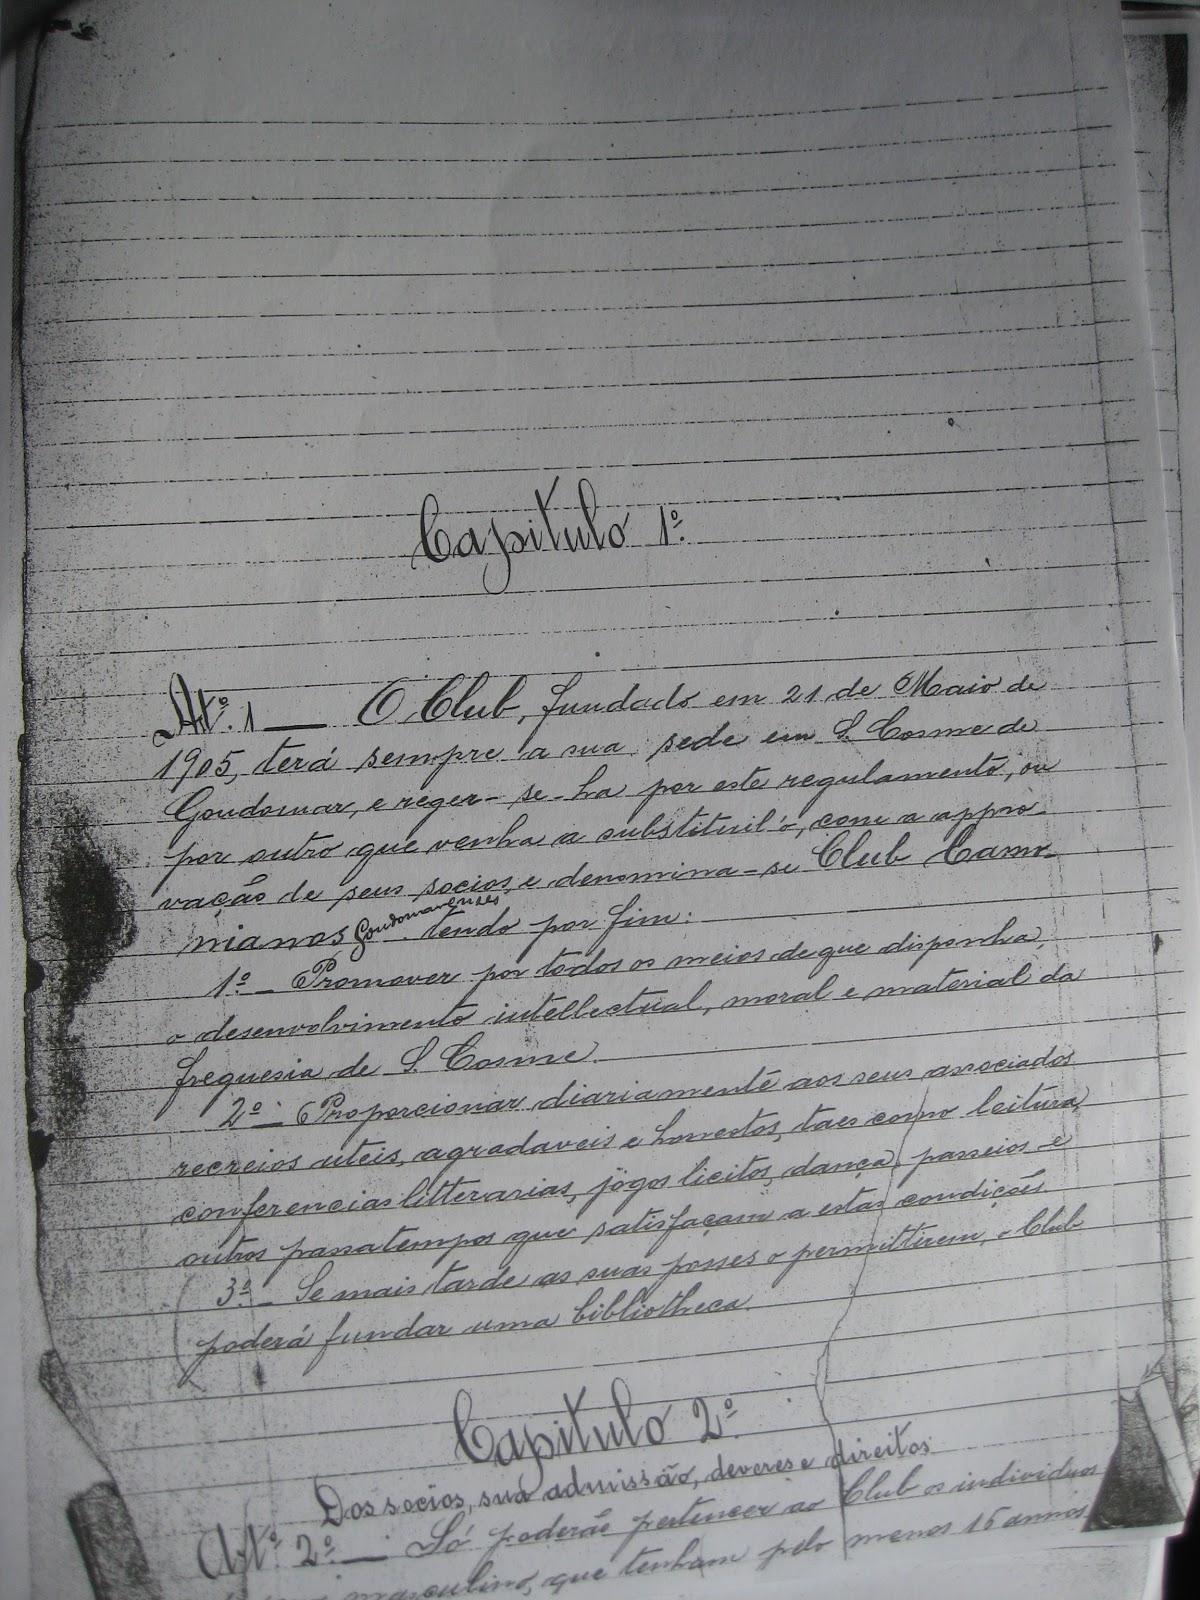 Capitulo 1º.
Artº. 1 — O Club, fundado em 21 de Maio de
1905, terá sempre a sua sede em S. Cosme de
Gondomar, e reger-se-ha por este regulamento, ou
por outro que venha a substituil-o, com a appro-
vação de seus socios, e denomina-se Club Camo-
nianos Gondomarenses tendo por fim:
1º — Promover por todos os meios de que disponha,
o desenvolvimento intellectual, moral e material da
freguesia de S. Cosme.
2º — Proporcionar diariamente aos seus associados
recreios uteis, agradaveis e honestos, taes como leitura,
conferencias litterarias, jogos licitos, dança, passeios e
outros passatempos que satisfaçam a estas condições.
3º — Se mais tarde as suas posses o permittirem, o Club
poderá fundar uma bibliotheca.
Capitulo 2º.
Dos socios, sua admissão, deveres e direitos
Artº. 2º — Só poderão pertencer ao Club os individuos
masculino, que tenham pelo menos 16 annos